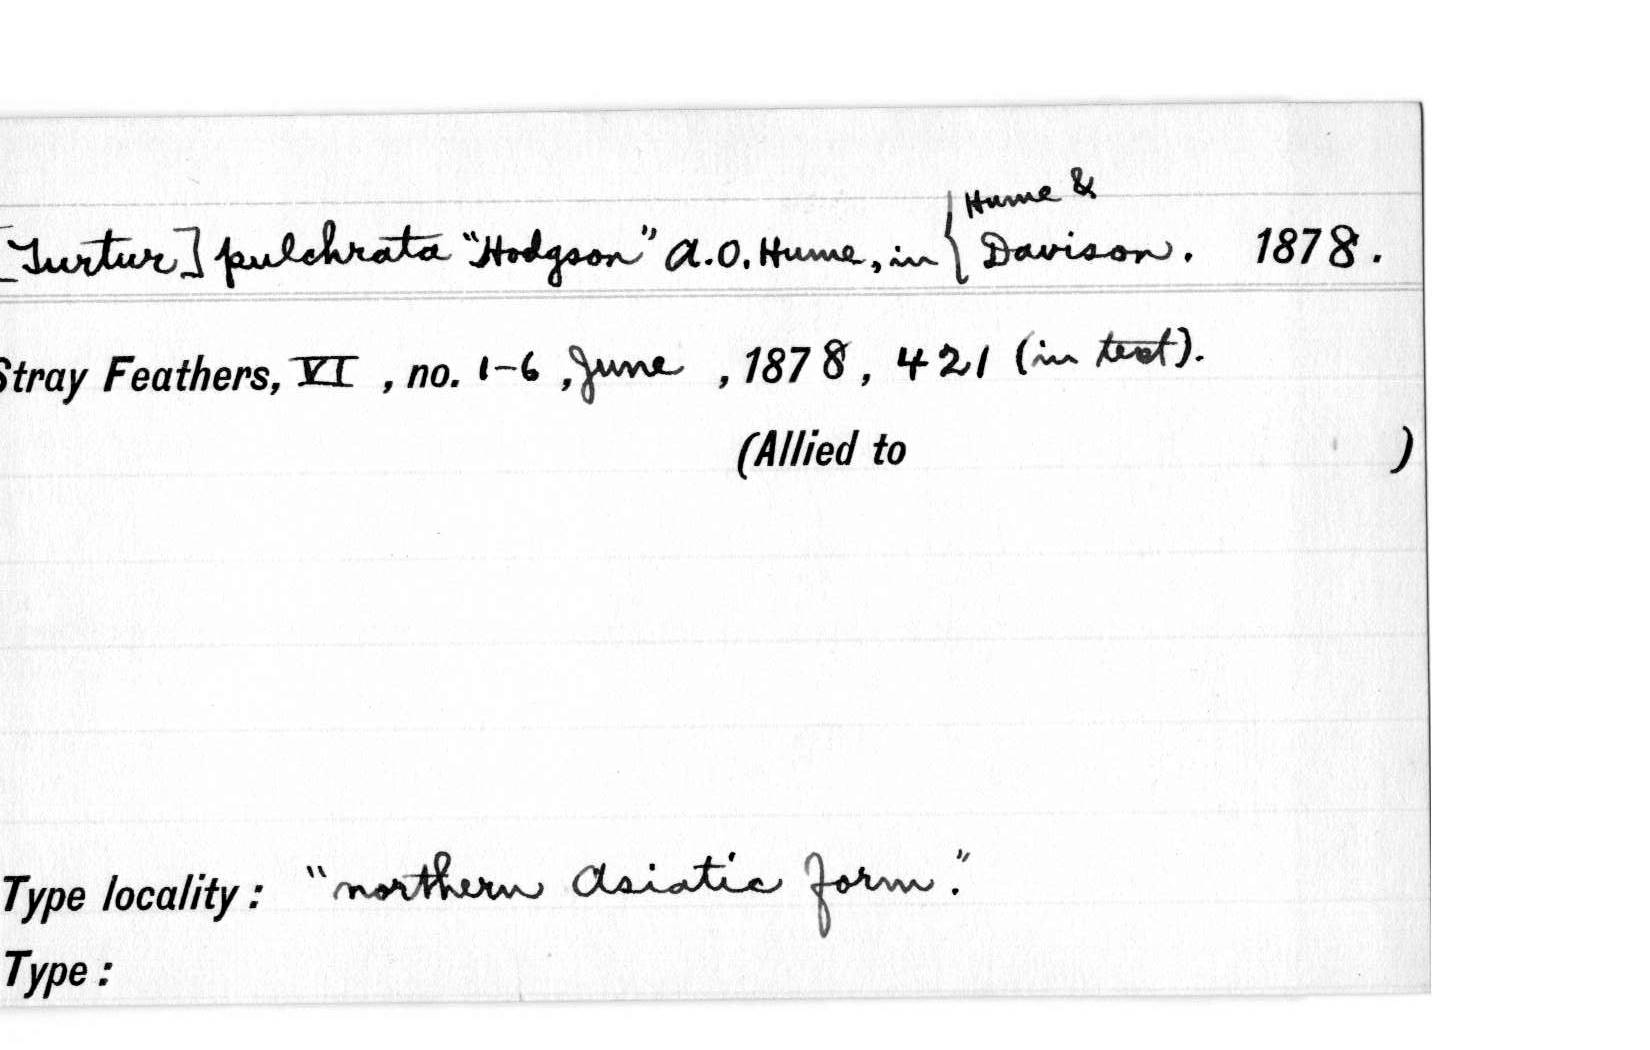 [Turtur] pulchrata "Hodgson" A.O. Hume, in { Hume & Davison. 1878.
Stray Feathers, VI, no. 1-6, June, 1878, 421 (in text).
(Allied to )
Type locality: "northern Asiatic form."
Type: